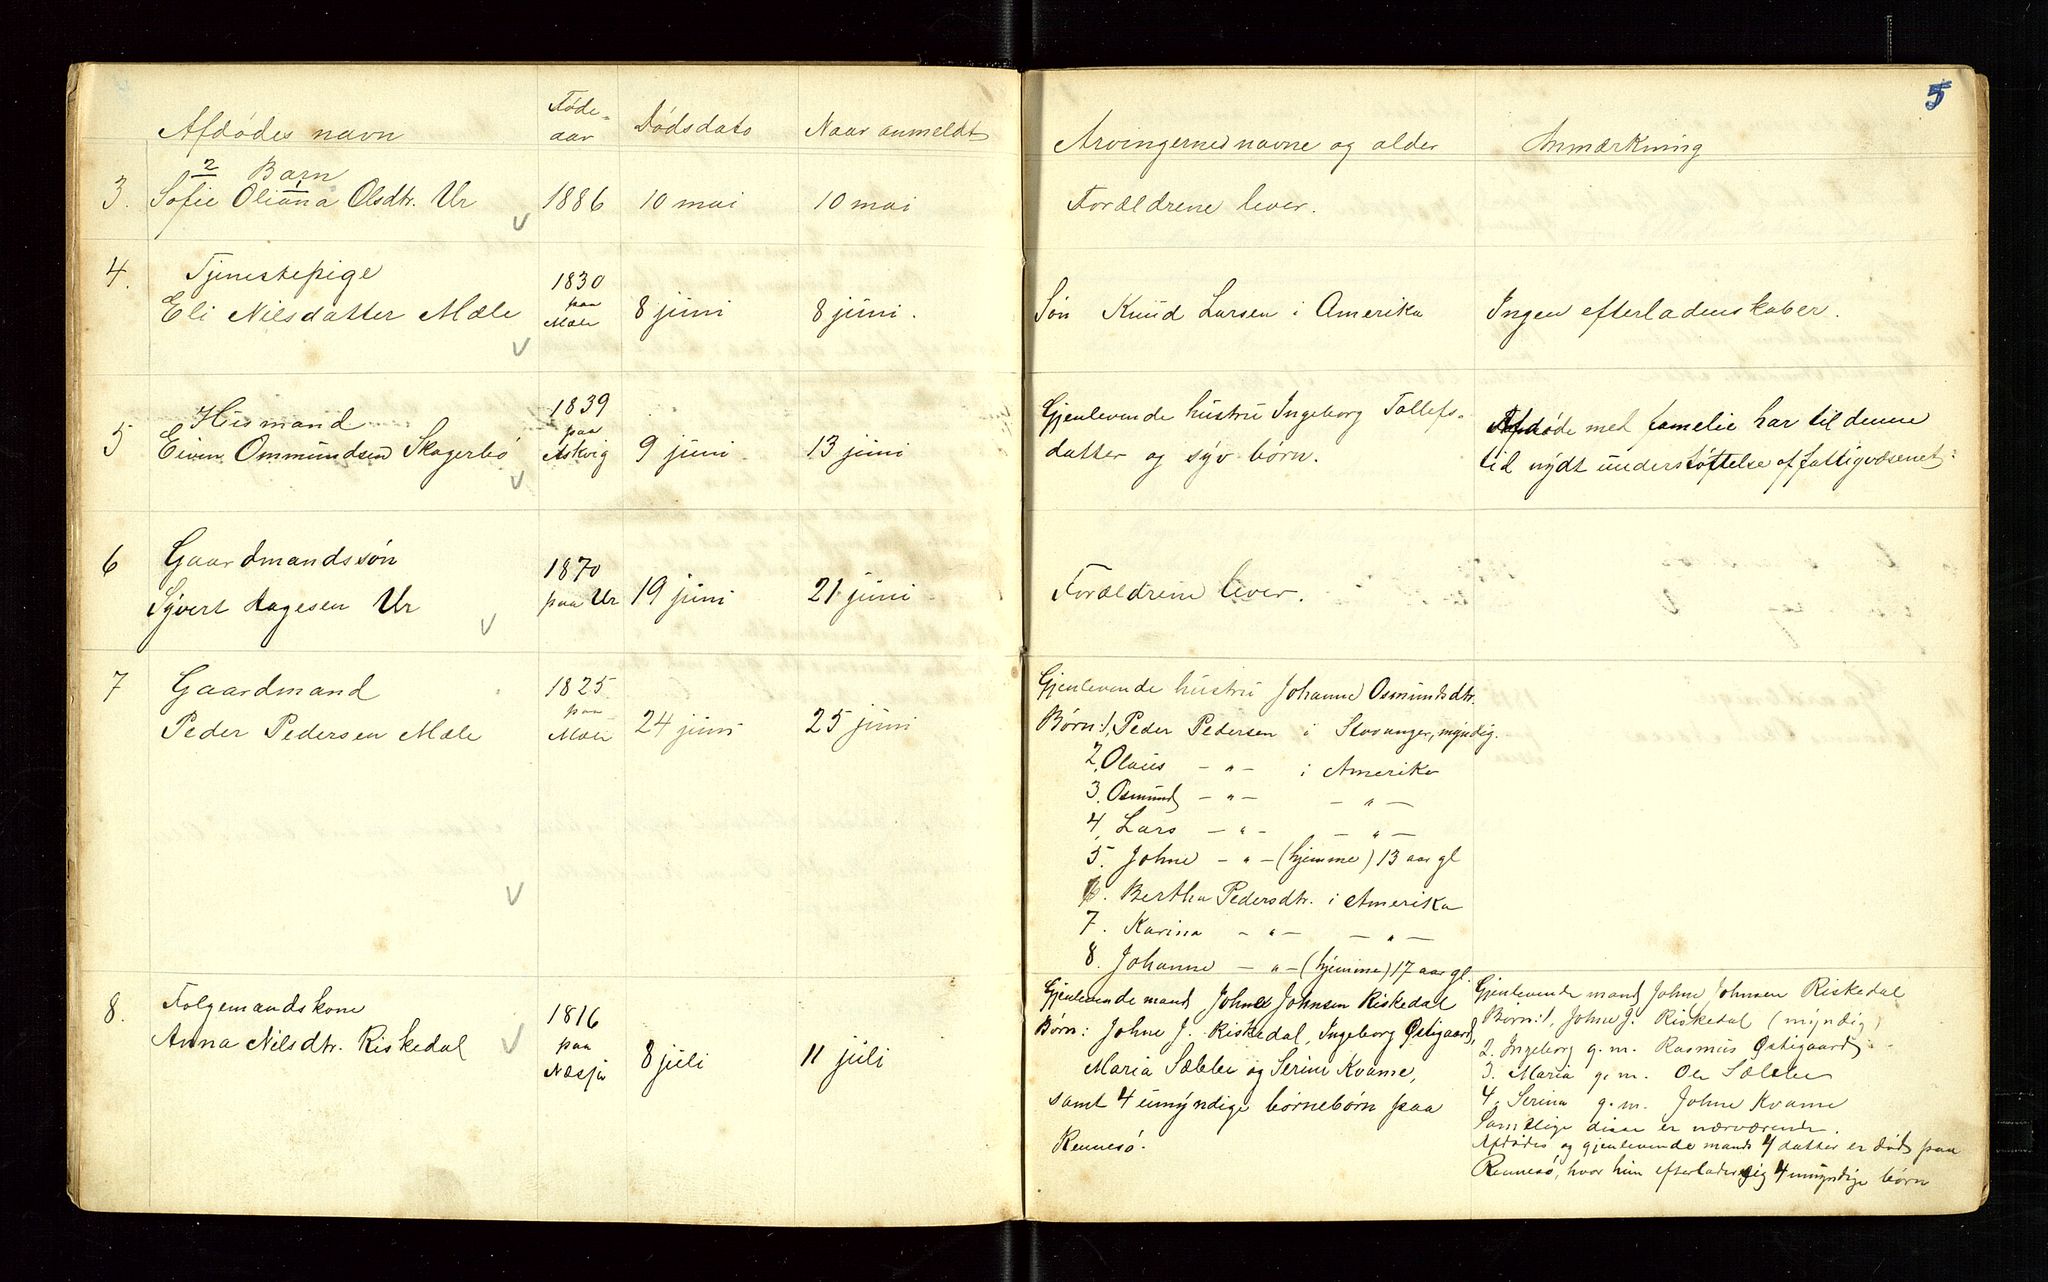 5
Afdødes navn
Føde-
aar
Dødsdato
Naar anmeldt
Arvingernes navne og alder
Anmærkning
2 Barn 1
3. Sofie Oliana Olsdtr. Ur
1886
10 mai
10 mai
Forældrene lever.
4. Tjenestepige
Eli Nilsdatter Mæle
1830
paa
Mæle
8 juni
8 juni.
Søn Knud Larsen i Amerika
Ingen efterladenskaber.
5 Husmand
Eivin Ommundsen Skagerbø
1839
paa
Askvig
9 juni
13 juni
Gjenlevende hustru Ingeborg Tollefs-
datter og syv børn.
Afdøde med familie har til denne
tid nydt understøttelse af fattigvæsenet.
6 Gaardmandssøn
Syvert Aagesen Ur
1870
paa Ur
19 juni
21 juni
Forældrene lever.
7 Gaardmand
Peder Pedersen Mæle
1825
paa
Mæle
24 juni
25 juni
Gjenlevende hustru Johanne Osmundsdtr.
Børn: 1, Peder Pedersen i Stavanger, myndig.
2, Olaus — " — i Amerika
3, Osmund — " — — " —
4, Lars — " — — " —
5. Johne — " — (hjemme) 13 aar gl
6. Bertha Pedersdtr. i Amerika
7. Karina — " — — " —
8. Johanne — " — (hjemme) 17 aar gl.
8. Folgemandskone
Anna Nilsdtr. Riskedal
1816
paa
Næsje
8 juli
11 juli
Gjenlevende mand Johne Johnsen Riskedal
Børn: Johne J. Riskedal, Ingeborg Østigaard,
Maria Sæbbe og Serine Kvame,
samt 4 umyndige børnebørn paa
Rennesø.
Gjenlevende mand Johne Johnsen Riskedal
Børn: 1, Johne J. Riskedal (myndig)
2. Ingeborg g. m. Rasmus Østigaard
3. Maria g. m. Ole Sæbbe
4, Serina g. m. Johne Kvame
Samtlige disse er nærværende.
Afdødes og gjenlevende mands 4 datter er død paa
Rennesø, hvor hun efterlader sig 4 umyndige børn